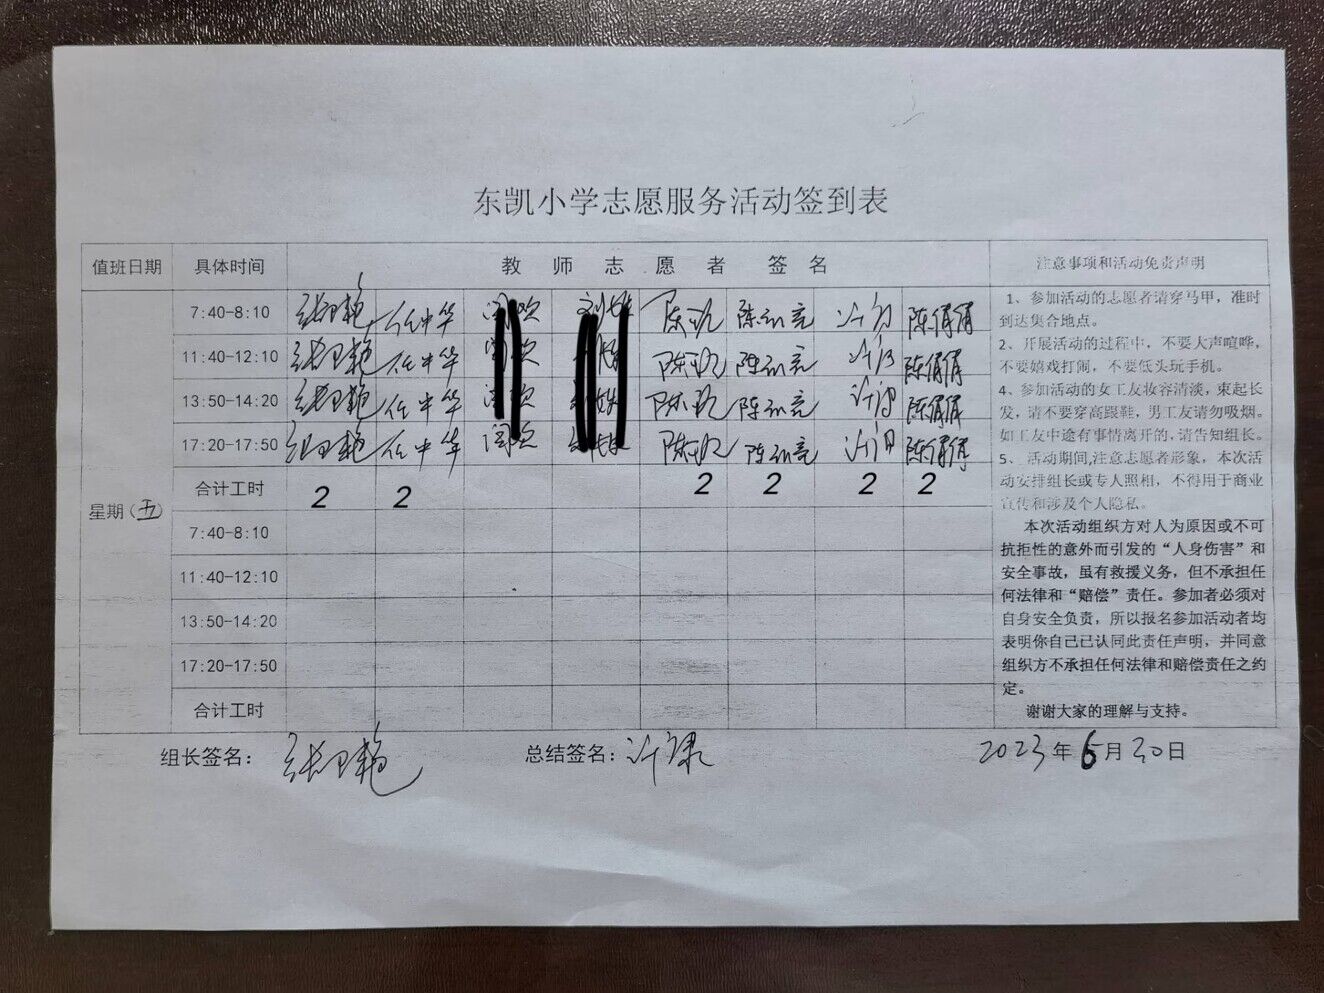 东凯小学志愿服务活动签到表
值班日期 具体时间 教师志愿者签名 注意事项和活动免责声明
7:40-8:10 任中华 陈 陈 陈倩倩
11:40-12:10 任中华 陈 陈 陈倩倩
13:50-14:20 任中华 陈 陈 陈倩倩
17:20-17:50 任中华 陈 陈 陈倩倩
合计工时 2 2 2 2 2 2
星期(五)
7:40-8:10
11:40-12:10
13:50-14:20
17:20-17:50
合计工时
1、参加活动的志愿者请穿马甲，准时
到达集合地点。
2、开展活动的过程中，不要大声喧哗，
不要嬉戏打闹，不要低头玩手机。
4、参加活动的女工友妆容清淡，束起长
发，请不要穿高跟鞋，男工友请勿吸烟。
如工友中途有事情离开的，请告知组长。
5、活动期间,注意志愿者形象，本次活
动安排组长或专人照相，不得用于商业
宣传和涉及个人隐私。
本次活动组织方对人为原因或不可
抗拒性的意外而引发的“人身伤害”和
安全事故，虽有救援义务，但不承担任
何法律和“赔偿”责任。参加者必须对
自身安全负责，所以报名参加活动者均
表明你自己已认同此责任声明，并同意
组织方不承担任何法律和赔偿责任之约
定。
谢谢大家的理解与支持。
组长签名： 总结签名: 2023年6月30日